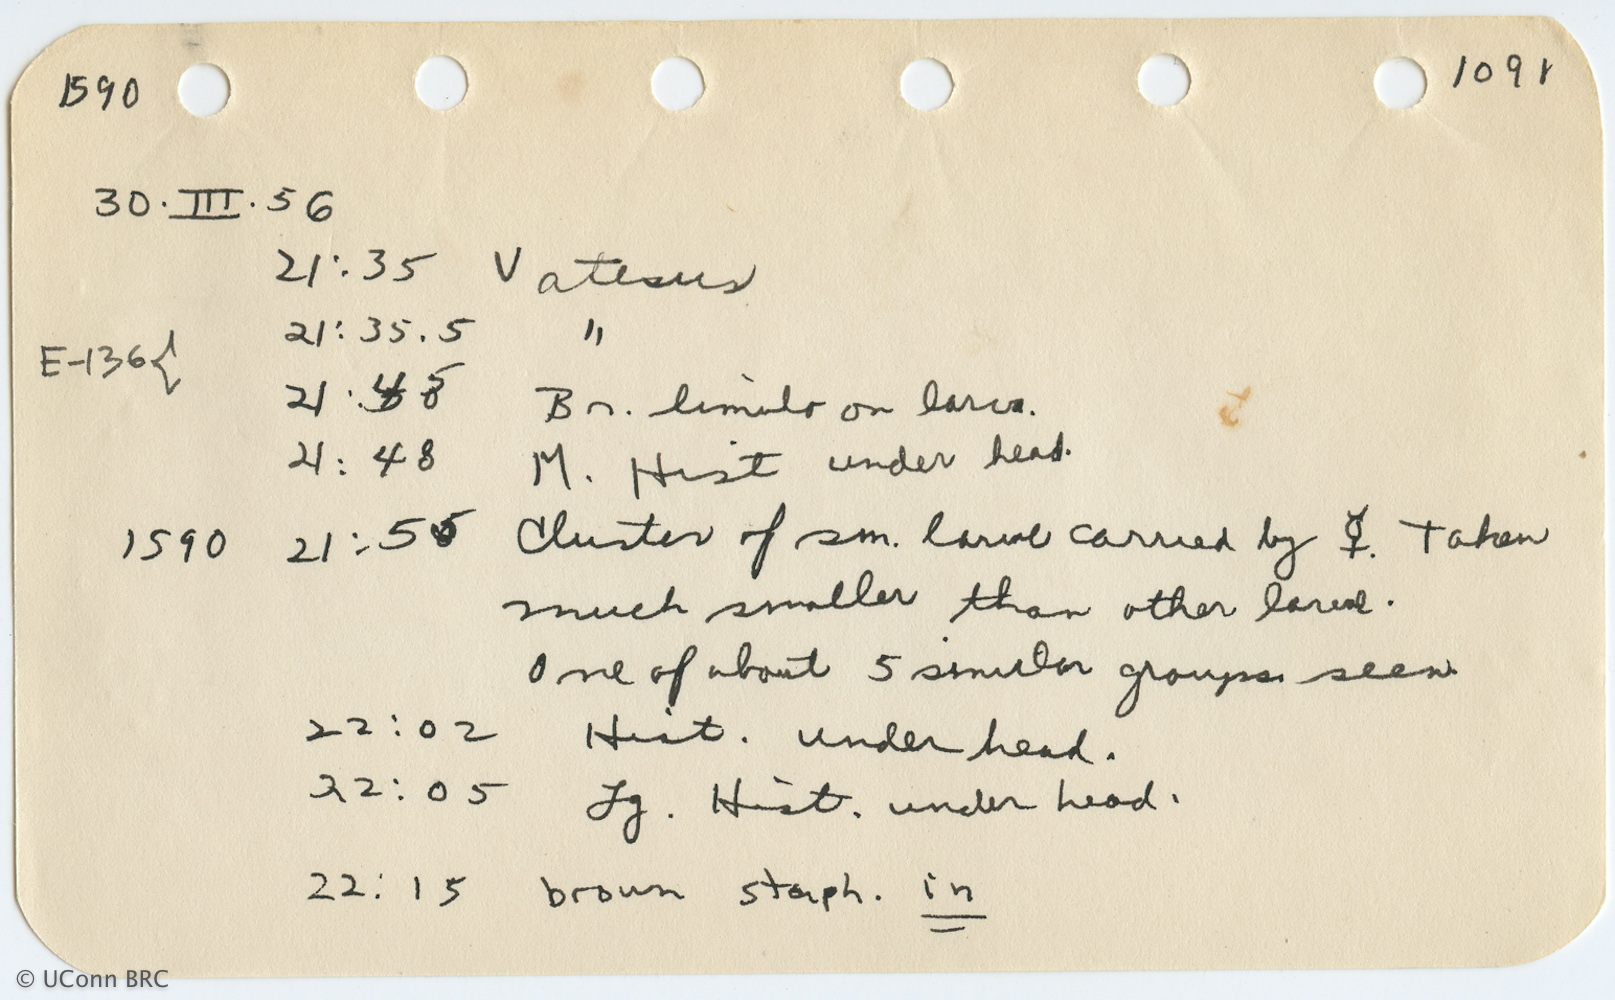 1590 1091
30·III·56
21:35 Vatesus
21:35.5 "
E-136{
21:45 Br. limulo on larva.
21:48 M. Hist under head.
1590 21:55 Cluster of sm. larvae carried by ☿. Taken
much smaller than other larvae.
One of about 5 similar groups seen
22:02 Hist. under head.
22:05 Lg. Hist. under head.
22:15 brown staph. in
© UConn BRC